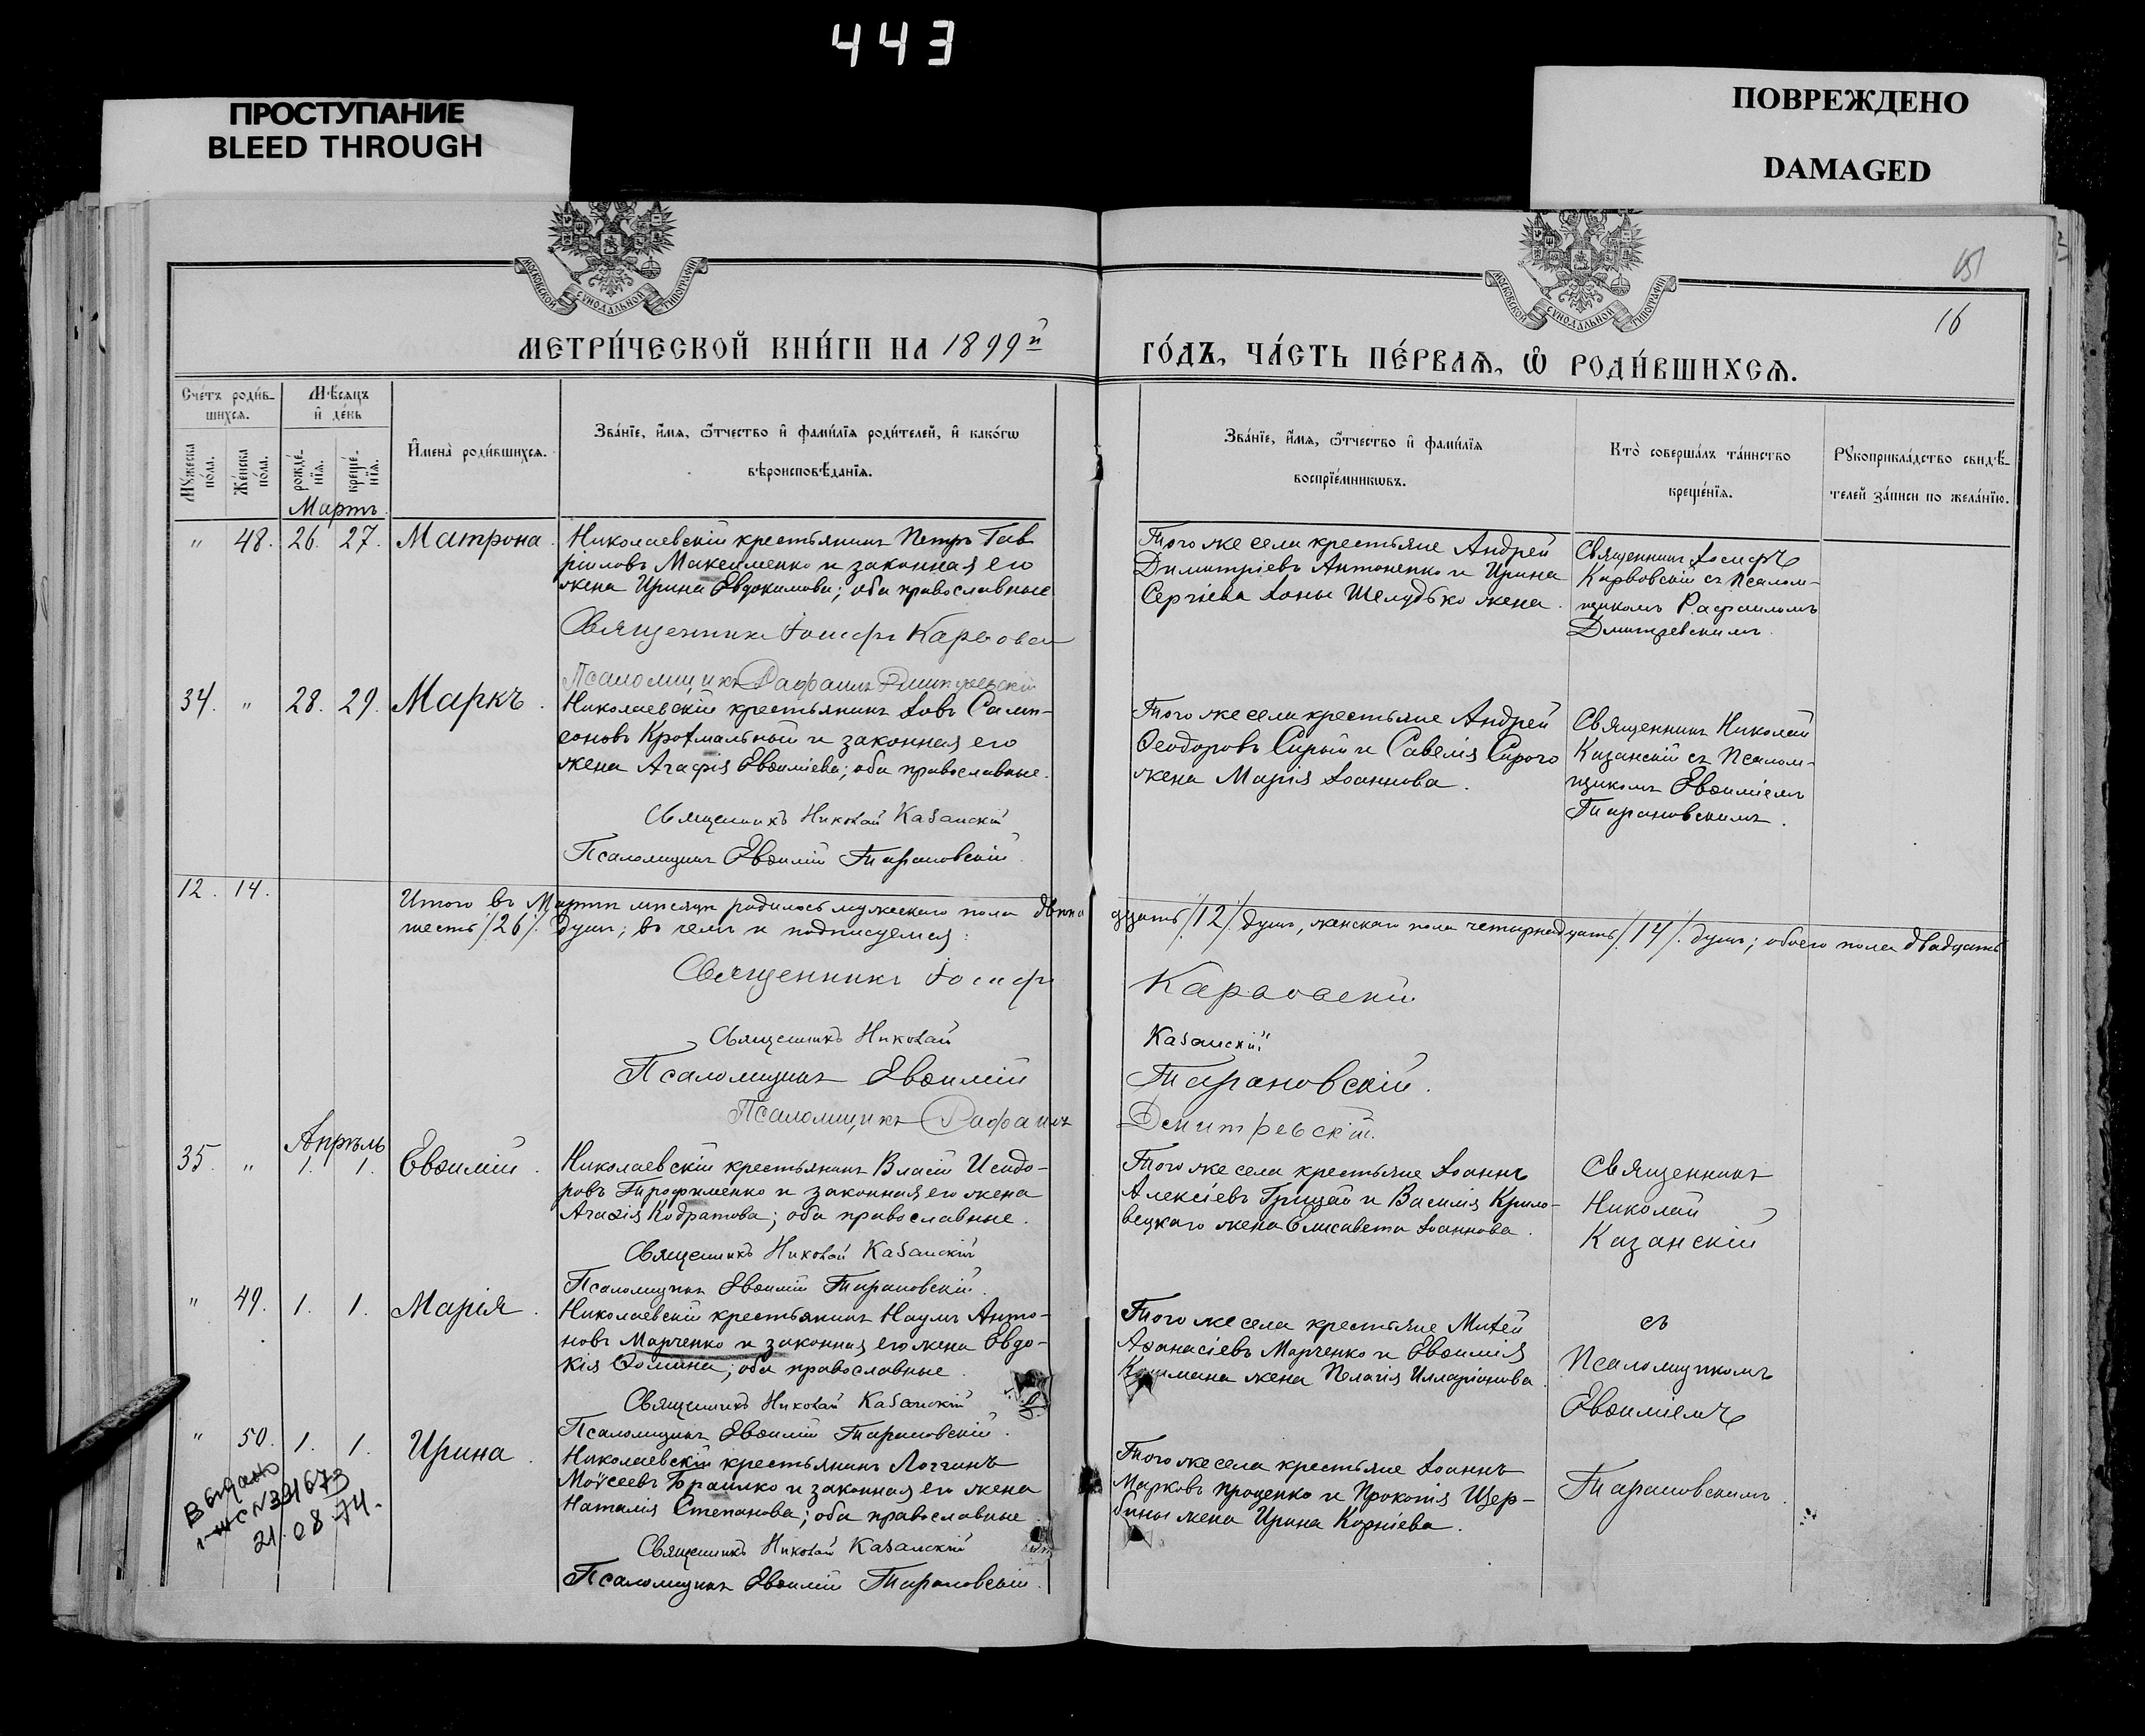 443
ПРОСТУПАНИЕ
BLEED THROUGH
ПОВРЕЖДЕНО
DAMAGED
МОСКОВСКОЙ СѴНОДАЛЬНОЙ ТИПОГРАФІИ
МОСКОВСКОЙ СѴНОДАЛЬНОЙ ТИПОГРАФІИ
16
МЕТРИ́ЧЕСКОЙ КНИ́ГИ НА 1899й
ГО́ДЪ, ЧА́СТЬ ПЕ́РВАѦ, Ѡ҆ РОДИ́ВШИХСѦ.
Сче́тъ роди́вшихсѧ.
Мꙋ́жеска по́ла.
Же́нска по́ла.
Мѣ́сѧцъ и҆ де́нь
рожде́нїѧ.
креще́нїѧ.
И҆мена̀ роди́вшихсѧ.
Зва́нїе, и҆́мѧ, ѻ҆́тчество и҆ фами́лїѧ роди́телей, и҆ како́гѡ
вѣроисповѣ́данїѧ.
Зва́нїе, и҆́мѧ, ѻ҆́тчество и҆ фами́лїѧ
воспрїе́мникѡвъ.
Кто̀ соверша́лъ та́инство
креще́нїѧ.
Рꙋкоприкла́дство свидѣ́-
телей за́писи по жела́нїю.
Мартъ
" 48. 26. 27. Матрона.
Николаевскій крестьянинъ Петръ Гав
ріиловъ Максименко и законная его
жена Ирина Евдокимова; оба православные
Священникъ Іосифъ Карвовскій
Псаломщикъ Рафаилъ Дмитревскій
Того же села крестьяне Андрей
Димитріевъ Антоненко и Ирина
Сергіева Іоны Шелудько жена.
Священникъ Іосифъ
Карвовскій съ Псалом-
щикомъ Рафаиломъ
Дмитревскимъ.
34. " 28. 29. Маркъ.
Николаевскій крестьянинъ Іовъ Самп-
соновъ Крохмальный и законная его
жена Агафія Евѳиміева; оба православные.
Священникъ Николай Казанскій
Псаломщикъ Евѳимій Тарановскій.
Того же села крестьяне Андрей
Ѳеодоровъ Сирый и Савелія Сирого
жена Марія Іоаннова.
Священникъ Николай
Казанскій съ Псалом-
щикомъ Евѳиміемъ
Тарановскимъ.
12. 14.
Итого въ Мартѣ мѣсяцѣ родилось мужескаго пола двѣна
дцать /12/. душъ, женскаго пола четырнадцать /14/. душъ; обоего пола двадцать
шесть /26/. душъ; въ чемъ и подписуемся:
Священникъ Іосифъ Карвовскій
Священникъ Николай Казанскій
Псаломщикъ Евѳимій Тарановскій.
Псаломщикъ Рафаилъ Дмитревскій.
Апрѣль
35. " 1. 1. Евѳимій.
Николаевскій крестьянинъ Власій Исидо-
ровъ Трофименко и законная его жена
Агаѳія Кодратова; оба православные.
Священникъ Николай Казанскій
Псаломщикъ Евѳимій Тарановскій.
Того же села крестьяне Іоаннъ
Алексіевъ Грицай и Василія Крило-
вецкаго жена Елисавета Іоаннова.
Священникъ
Николай
Казанскій
" 49. 1. 1. Марія.
Николаевскій крестьянинъ Наумъ Анто-
новъ Марченко и законная его жена Евдо-
кія Ѳомина; оба православные.
Священникъ Николай Казанскій
Псаломщикъ Евѳимій Тарановскій.
Того же села крестьяне Михей
Аѳанасіевъ Марченко и Евѳимія
жена Пелагія Илларіонова.
съ
Псаломщикомъ
Евѳиміемъ
" 50. 1. 1. Ирина.
Николаевскій крестьянинъ Логгинъ
Моѵсеевъ Браилко и законная его жена
Наталія Степанова; оба православные.
Священникъ Николай Казанскій
Псаломщикъ Евѳимій Тарановскій.
Того же села крестьяне Іоаннъ
Марковъ Проценко и Прокопія Щер-
бины жена Ирина Корніева.
Тарановскимъ.
Выдано
21.08.74.